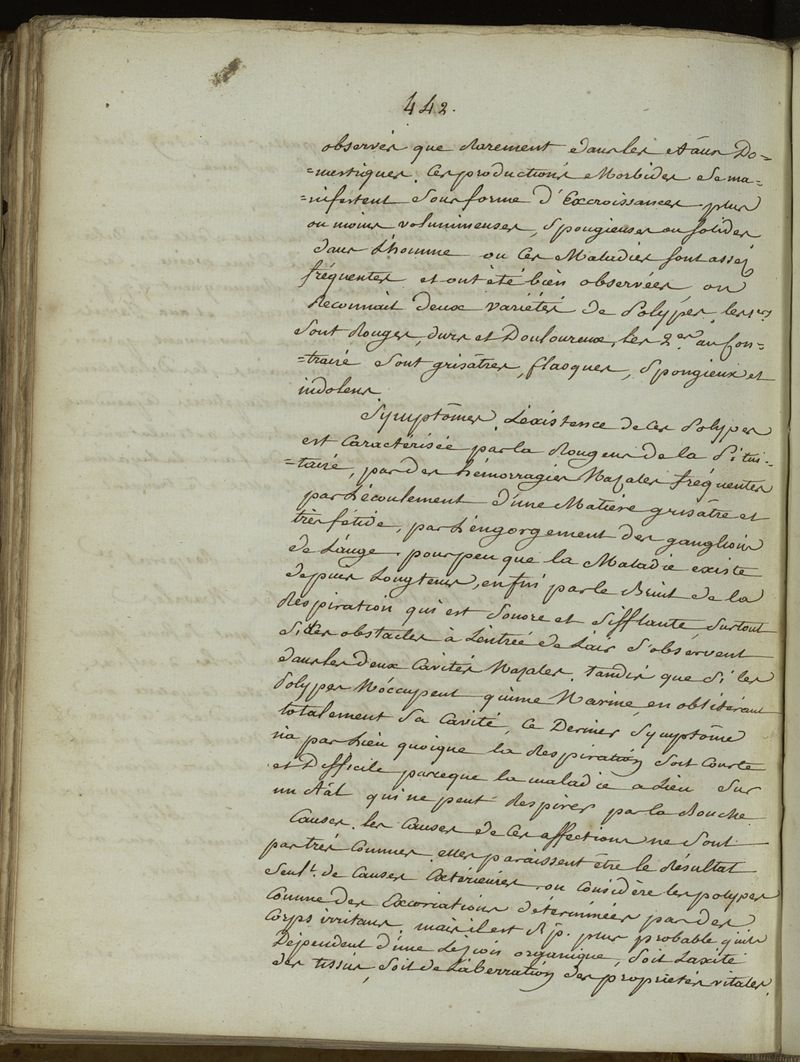 442.
observés que Rarement dans les Aaux Do=
=mestiques. Ces productions Morbides se ma=
=nifestent sous forme d'Excroissances plus
ou moins volumineuses, spongieuses ou solides
dans L'homme ou Ces Maladies sont assez
fréquentes et ont été bien observées, on
Reconnait deux variétés de Polypes, les 1ers
sont Rouges, durs et Douloureux, les 2es au Con=
=traire sont grisâtres, flasques, spongieux et
indolens
Symptômes. L'existence de Ces Polypes
est Caractérisée par la Rougeur de la Pitui=
=taire, par des hémorragies Nazales fréquentes
par L'écoulement d'une Matière grisâtre et
très fétide, par L'engorgement des ganglions
de L'auge, pour peu que la Maladie existe
depuis Longtems, enfin par le Bruit de la
Respiration qui est sonore et sifflante surtout
si des obstacles à L'entrée de L'air s'observent
dans les deux Cavités Nazales. tandis que si les
Polypes N'occupent qu'une Narine, en oblitérant
totalement sa Cavité, Ce Dernier Symptôme
n'a pas Lieu quoique la Respiration soit Courte
et Difficile parceque la maladie a Lieu sur
un Aal qui ne peut Respirer par la Bouche.
Causes. les Causes de Ces affections ne sont
pas très Connues. elles paraissent être le Résultat
seult. de Causes Extérieures. on Considère les polypes
Comme des Excoriations déterminées par des
Corps irritans, mais il est plus probable qu'ils
Dépendent d'une Lesion organique, soit Laxité
des tissus, soit de L'aberration des propriétés vitales.